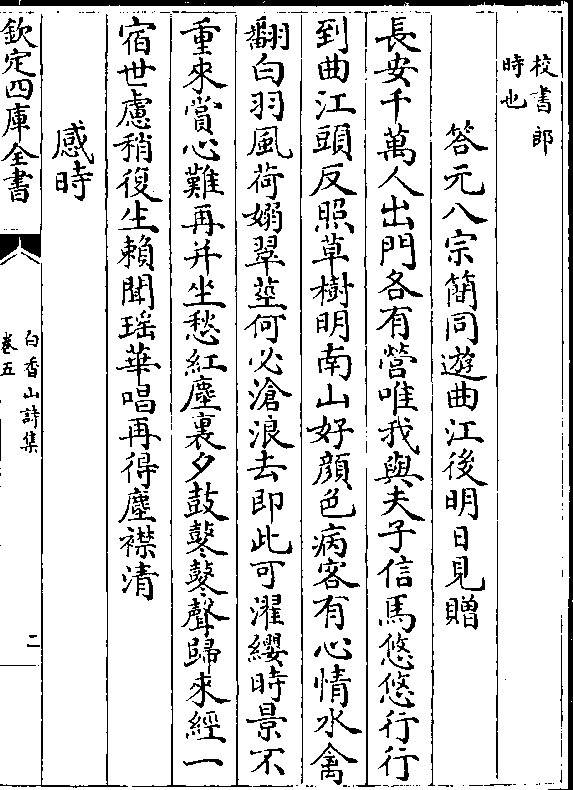 校書郎
時也
答元八宗簡同遊曲江後明日見贈
長安千萬人出門各有營唯我與夫子信馬悠悠行行
到曲江頭反照草樹明南山好顔色病客有心情水禽
翻白羽風荷嫋翠莖何必滄浪去即此可濯纓時景不
重來賞心難再并坐愁紅塵裏夕鼓鼕鼕聲歸來經一
宿世慮稍復生賴聞瑶華唱再得塵襟清
感時
欽定四庫全書
白香山詩集
卷五
二